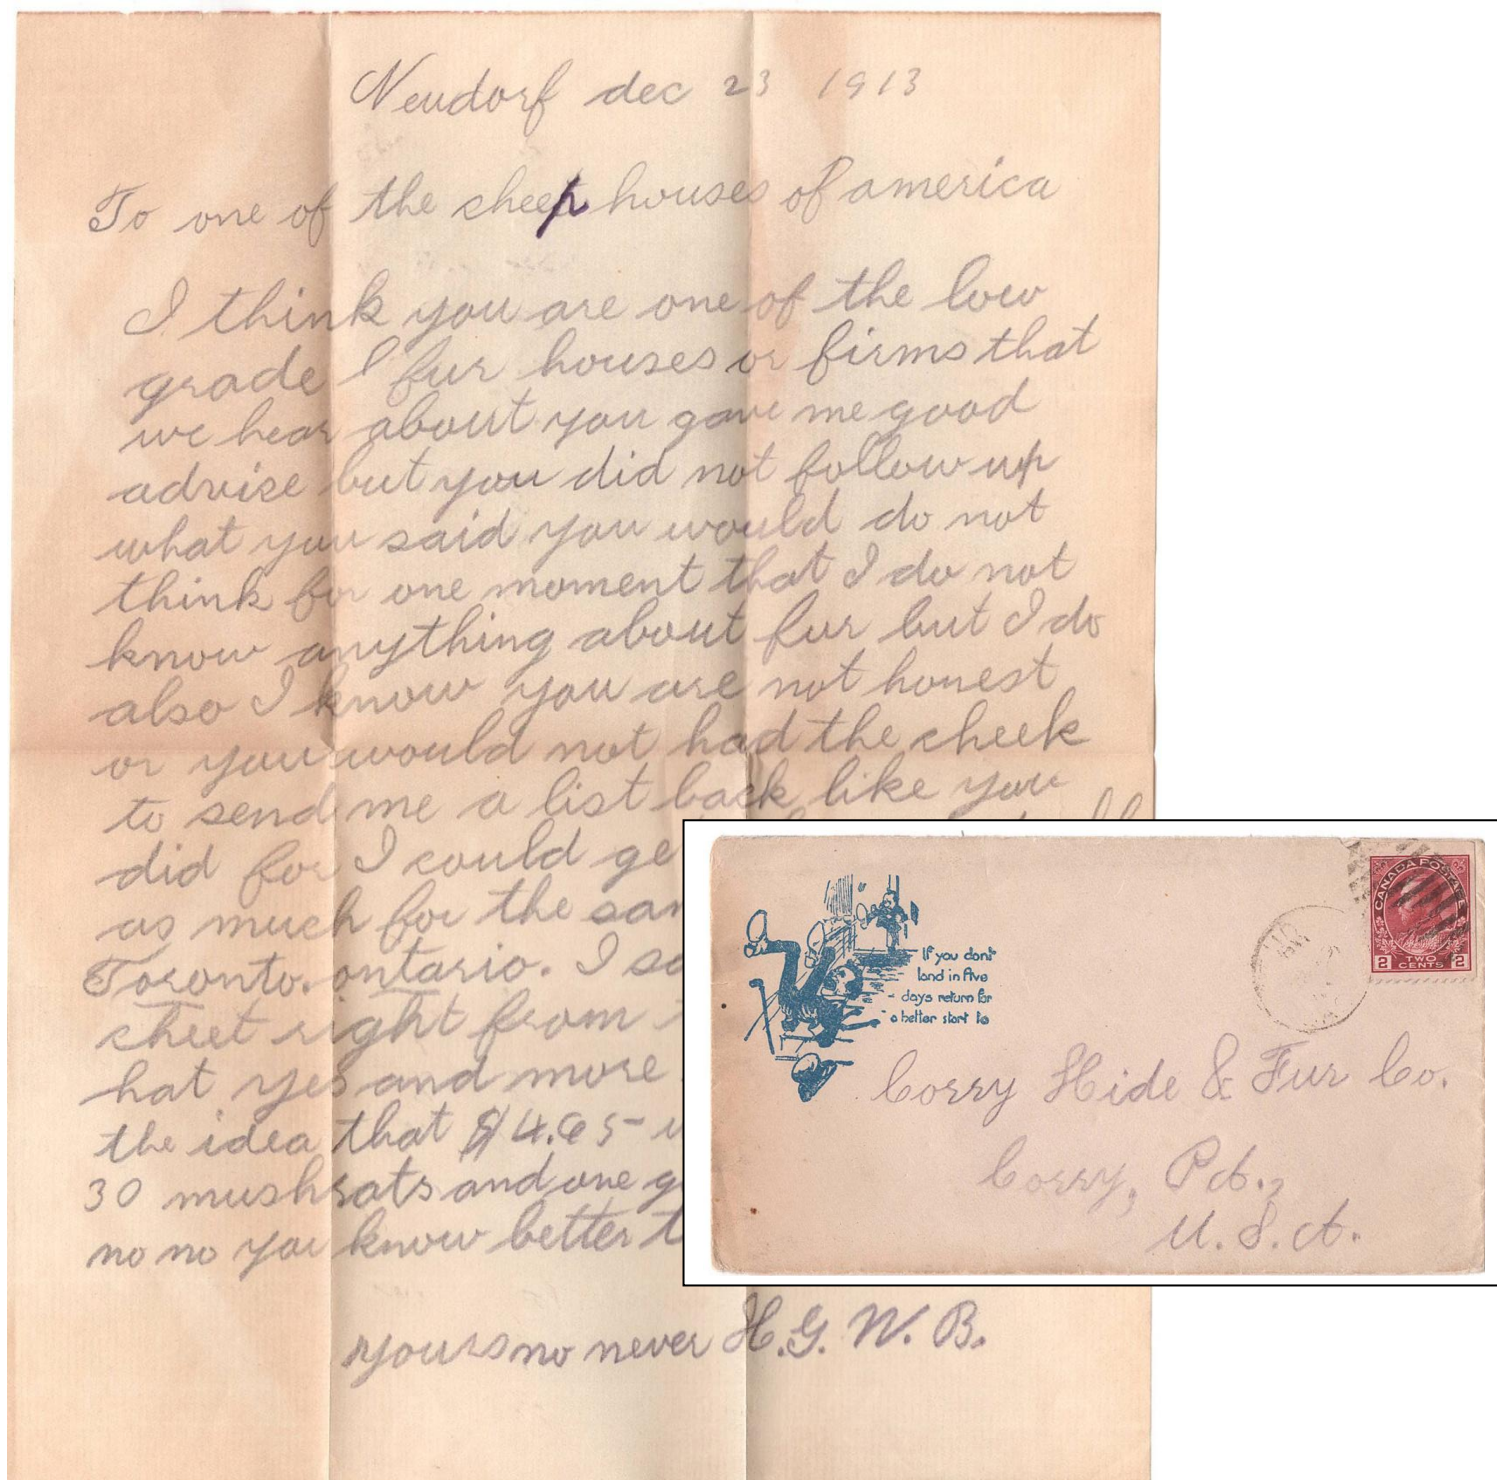 Neudorf dec 23 1913
To one of the cheep houses of america
I think you are one of the low
grade fur houses or firms that
we hear about you gave me good
advise but you did not follow up
what you said you would do not
think for one moment that I do not
know anything about fur but I do
also I know you are not honest
or you would not had the cheek
to send me a list back like you
did for I could ge
as much for the sa
Toronto. ontario. I
cheet right from
hat yes and more
the idea that
30 mushrats and one g
no no you know better t
yours no never H.G. W. B.
If you don't
land in five
days return for
a better start to
CANADA POSTAGE
2 TWO CENTS 2
Corry Hide & Fur Co.
Corry, Pa.,
U.S.A.